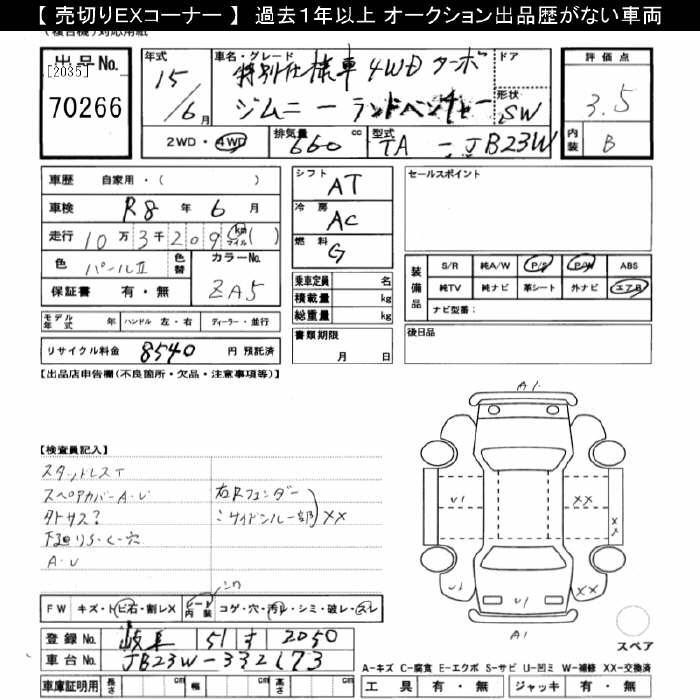 【 売切りEXコーナー 】 過去1年以上 オークション出品歴がない車両
出品No.
[2035]
70266
年式
15/6月
車名・グレード
特別仕様車 4WD ターボ
ジムニー ランドベンチャー
ドア
形状
SW
2WD・4WD
排気量
660 cc
型式
TA-JB23W
評価点
3.5
内装
B
車歴 自家用・( )
車検 R8年 6月
走行 10万3千209 km マイル ( )
色 パールII 色替
カラーNo.
ZA5
保証書 有・無
モデル年式 年 ハンドル 左・右 ディーラー・並行
リサイクル料金 8540 円 預託済
シフト
AT
冷房
AC
燃料
G
乗車定員 名
積載量 kg
総重量 kg
書類期限
月 日
セールスポイント
装備品
S/R 純A/W P/S P/W ABS
純TV 純ナビ 革シート 外ナビ エアB
ナビ型番:
後日品
【出品店申告欄(不良箇所・欠品・注意事項等)】
【検査員記入】
スタッドレスT
スペアカバーA・U
下廻りS・C・穴
A・U
右Rフェンダー
XX
FW キズ・トビ石・割レX
シート内装 コゲ・穴・汚レ・シミ・破レ・スレ
シワ
登録No. 岐阜 51す 2050
車台No. JB23W-332173
車庫証明用 長さ cm 幅 cm 高さ cm
A1
U1
XX
XX
U1
XX
U1
A1
スペア
A-キズ C-腐食 E-エクボ S-サビ U-凹ミ W-補修 XX-交換済
工具 有・無 ジャッキ 有・無